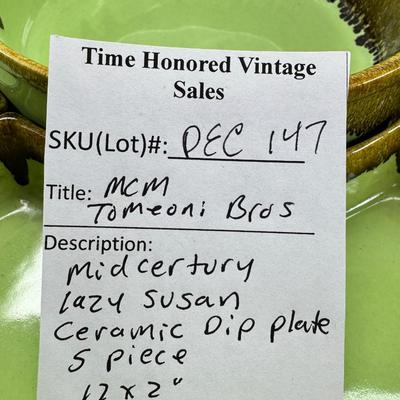 Time Honored Vintage
Sales
SKU(Lot)#: DEC 147
Title: MCM
Tomeoni Bros
Description:
Midcertury
Lazy Susan
Ceramic Dip plate
5 piece
12 x 2"